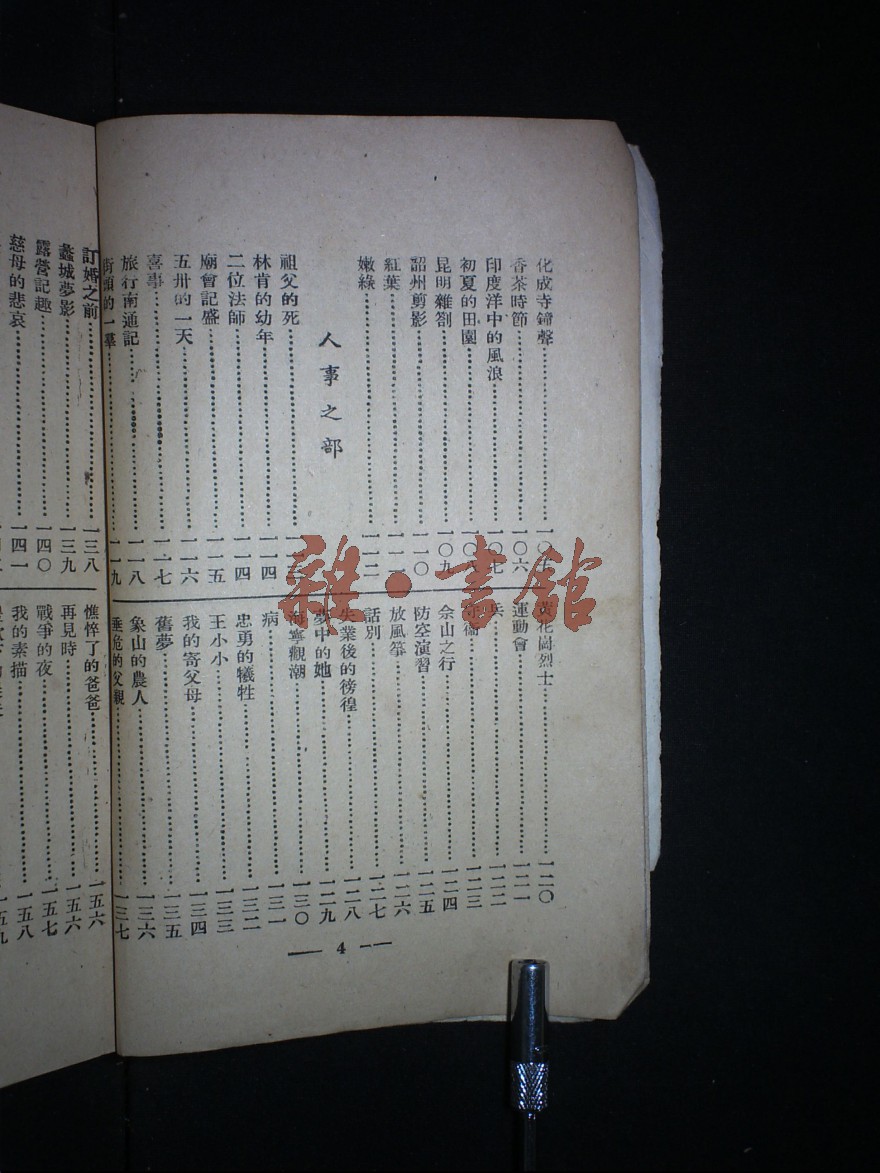 化成寺鐘聲
香茶時節……一〇六
印度洋中的風浪……一〇七
初夏的田園……一〇八
昆明雜劄……一〇九
韶州剪影……一一〇
紅葉……一一一
嫩綠……一一二
人事之部
祖父的死
林肯的幼年……一一四
二位法師……一一四
廟會記盛……一一五
五卅的一天……一一六
喜事……一一七
旅行南通記……一一八
街頭的一羣……一一九
黃花岡烈士……一二〇
運動會……一二一
兵……一二二
一二三
佘山之行……一二四
防空演習……一二五
放風箏……一二六
話別……一二七
失業後的徬徨……一二八
夢中的她……一二九
海寧觀潮……一三〇
病……一三一
忠勇的犧牲……一三二
王小小……一三三
我的寄父母……一三四
舊夢……一三五
象山的農人……一三六
垂危的父親……一三七
— 4 —
訂婚之前……一三八
蠡城夢影……一三九
露營記趣……一四〇
慈母的悲哀……一四一
憔悴了的爸爸……一五六
再見時……一五六
戰爭的夜……一五七
我的素描……一五八
雜·書館